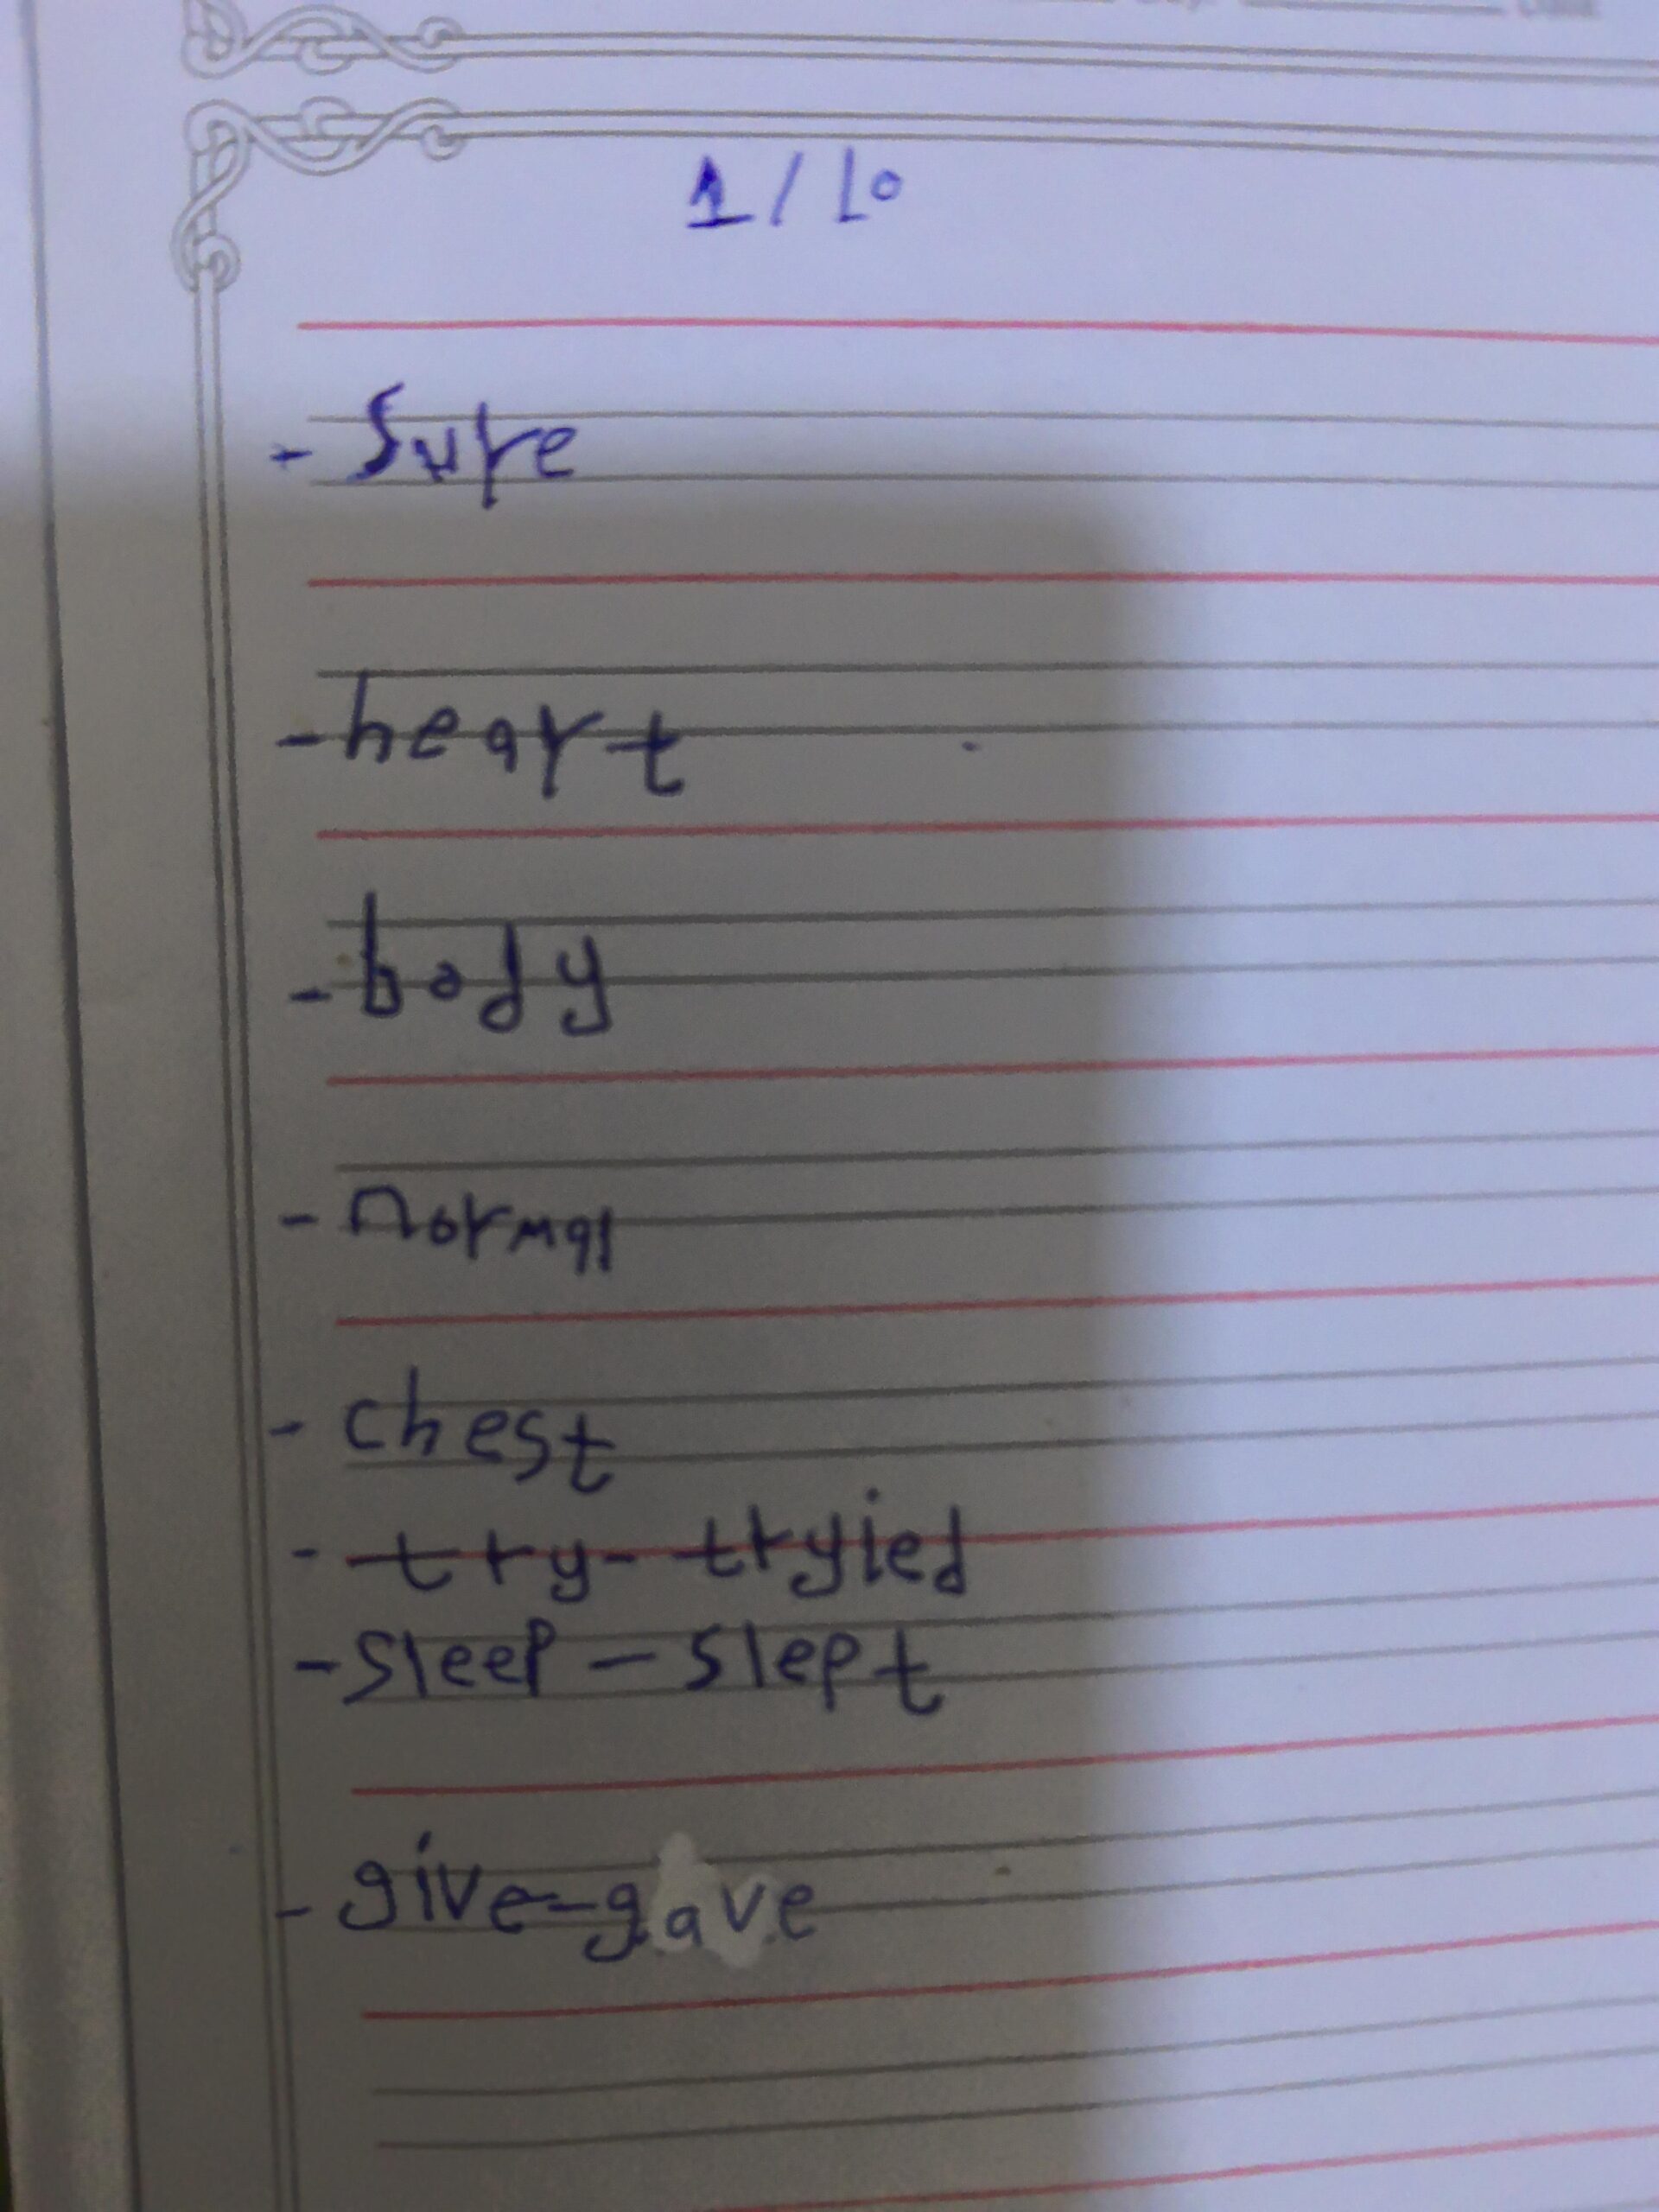 1/10
- Sure
- heart
- body
- normal
- chest
- try - tryied
- sleep - slept
- give - gave